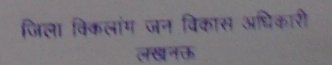 जिला विकलांग जन विकास अधिकारी
लखनऊ